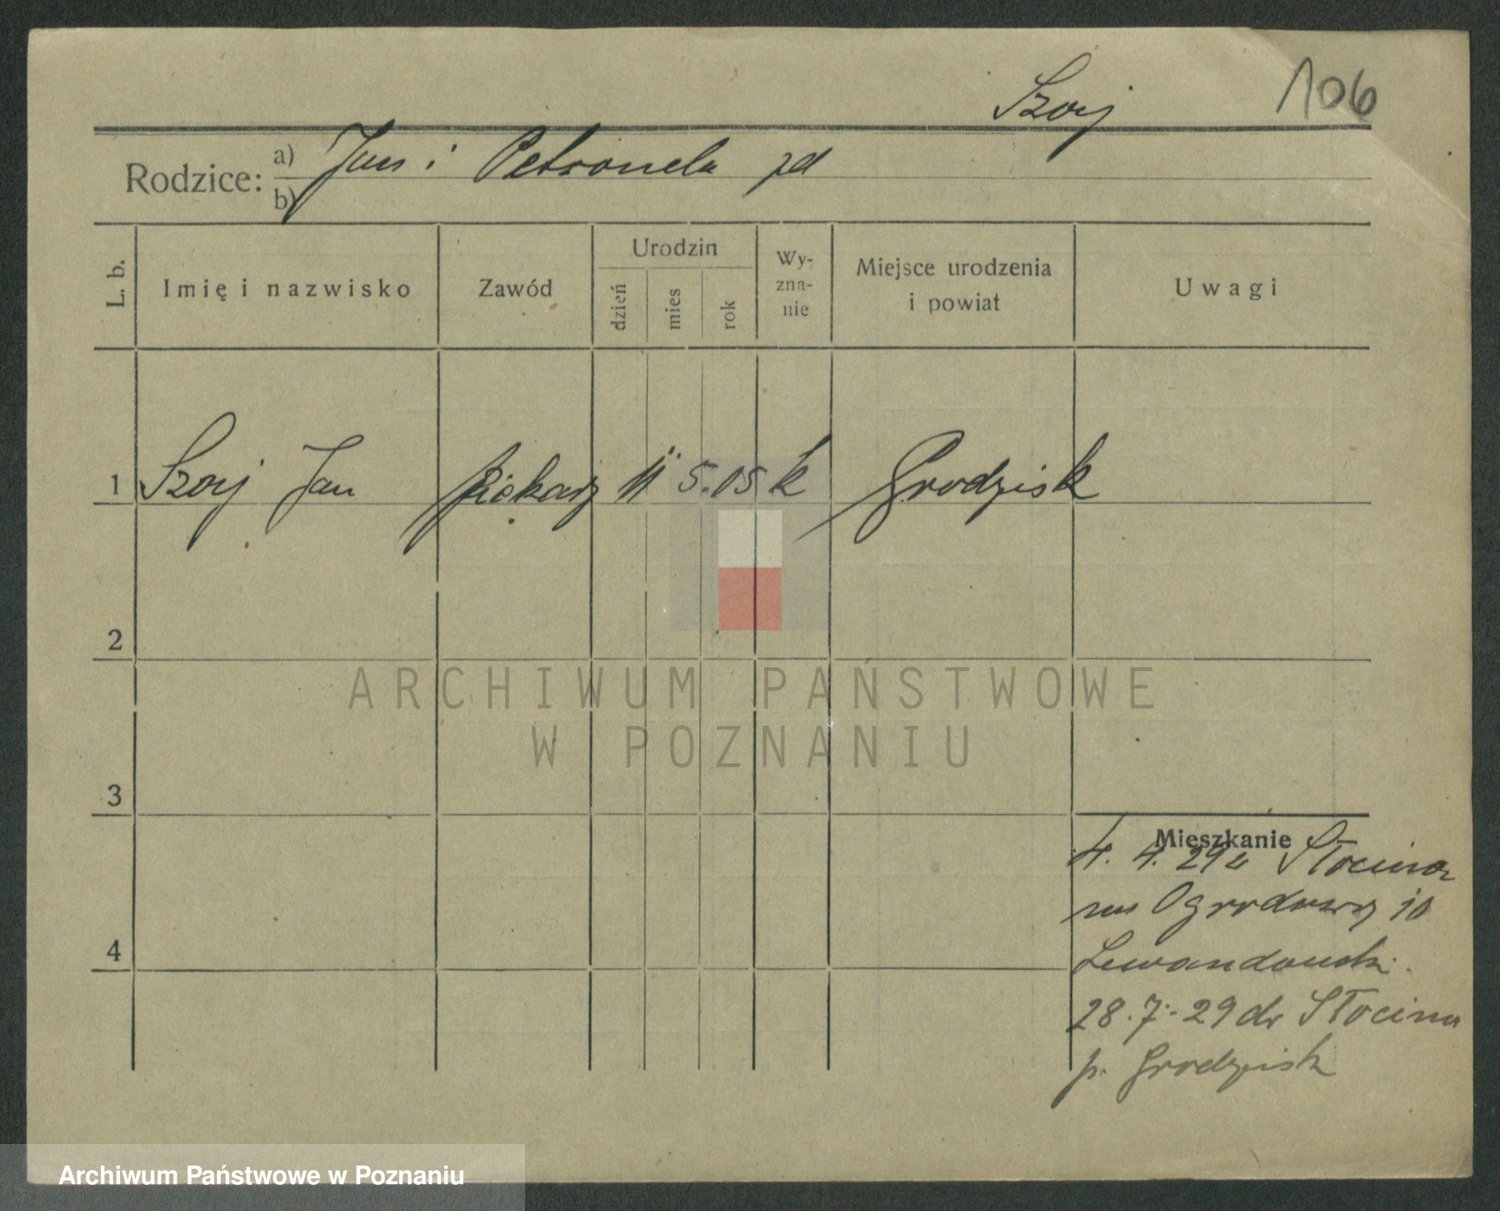 Szoij
106
Rodzice: a) Jan i Petronela zd
b)
L. b. Imię i nazwisko Zawód Urodzin dzień mies rok Wy-zna-nie Miejsce urodzenia i powiat Uwagi
1 Szoij Jan piekarz 11 5. 05 k Grodzisk
2
ARCHIWUM PAŃSTWOWE
W POZNANIU
3
Mieszkanie
4. 4. 29 z Słocina
na Ogrodowa 10
4
Lewandowski.
28. 7. 29 do Słocina
p. Grodzisk
Archiwum Państwowe w Poznaniu